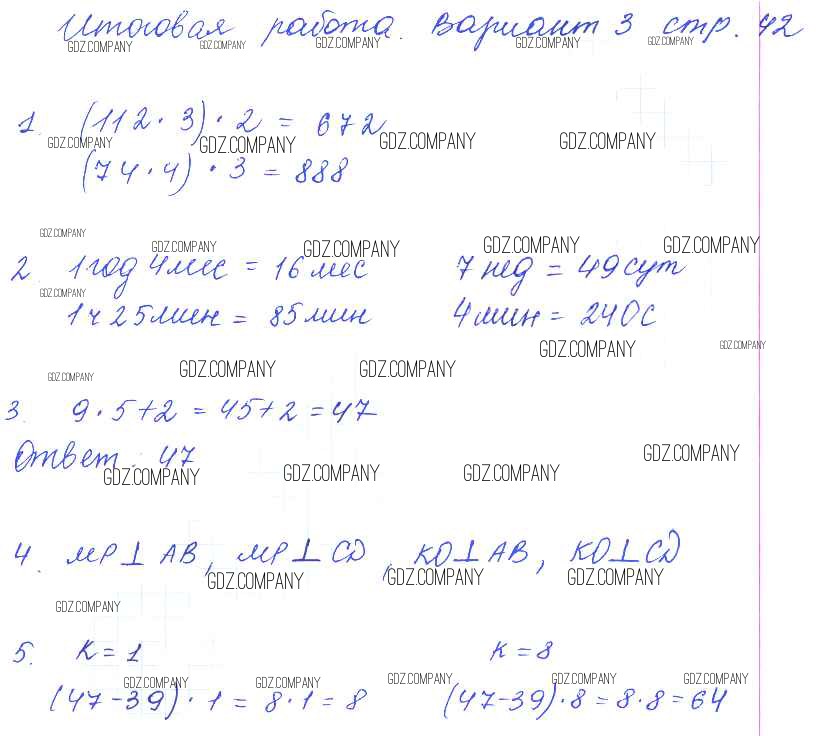 Итоговая работа. Вариант 3 стр. 42
GDZ.COMPANY GDZ.COMPANY GDZ.COMPANY GDZ.COMPANY GDZ.COMPANY
1. (112·3)·2 = 672
GDZ.COMPANY GDZ.COMPANY GDZ.COMPANY GDZ.COMPANY
(74·4)·3 = 888
GDZ.COMPANY GDZ.COMPANY GDZ.COMPANY GDZ.COMPANY GDZ.COMPANY
2 1 год 4 мес = 16 мес 7 нед = 49 сут
GDZ.COMPANY
1 ч 25 мин = 85 мин 4 мин = 240 с
GDZ.COMPANY GDZ.COMPANY
GDZ.COMPANY GDZ.COMPANY GDZ.COMPANY
3. 9·5+2 = 45+2 = 47
Ответ: 47 GDZ.COMPANY
GDZ.COMPANY GDZ.COMPANY GDZ.COMPANY
4. MP⊥AB, MP⊥CD, KO⊥AB, KO⊥CD
GDZ.COMPANY GDZ.COMPANY GDZ.COMPANY
GDZ.COMPANY
5. K = 1 K = 8
GDZ.COMPANY GDZ.COMPANY GDZ.COMPANY GDZ.COMPANY GDZ.COMPANY
(47-39)·1 = 8·1 = 8 (47-39)·8 = 8·8 = 64